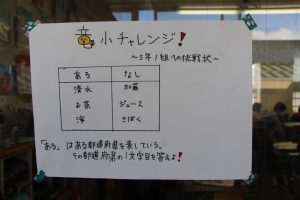 竜小チャレンジ!
～5年1組への挑戦状～
ある なし
清水 加藤
お茶 ジュース
海 さばく
「ある」はある都道府県を表している。
その都道府県の1文字目を答えよ!